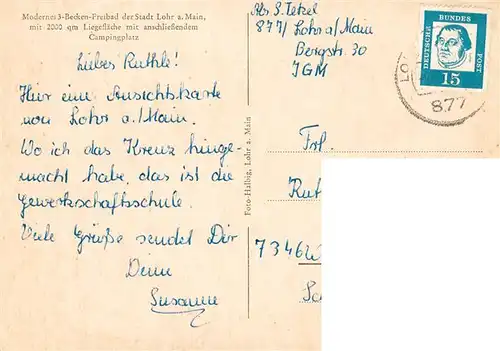 Modernes 3-Becken-Freibad der Stadt Lohr a. Main,
mit 2000 qm Liegefläche mit anschließendem
Campingplatz
Liebes Ruthle!
Hier eine Ansichtskarte
von Lohr a./Main.
Wo ich das Kreuz hinge-
macht habe, das ist die
Gewerkschaftsschule.
Viele Grüße sendet Dir
Deine
Susanne
Foto-Halbig, Lohr a. Main
Abs. S. Tetzel
877/ Lohr a/Main
Bergstr. 30
IGM
DEUTSCHE BUNDES POST
15
LO
877
Frl.
Rut
7346